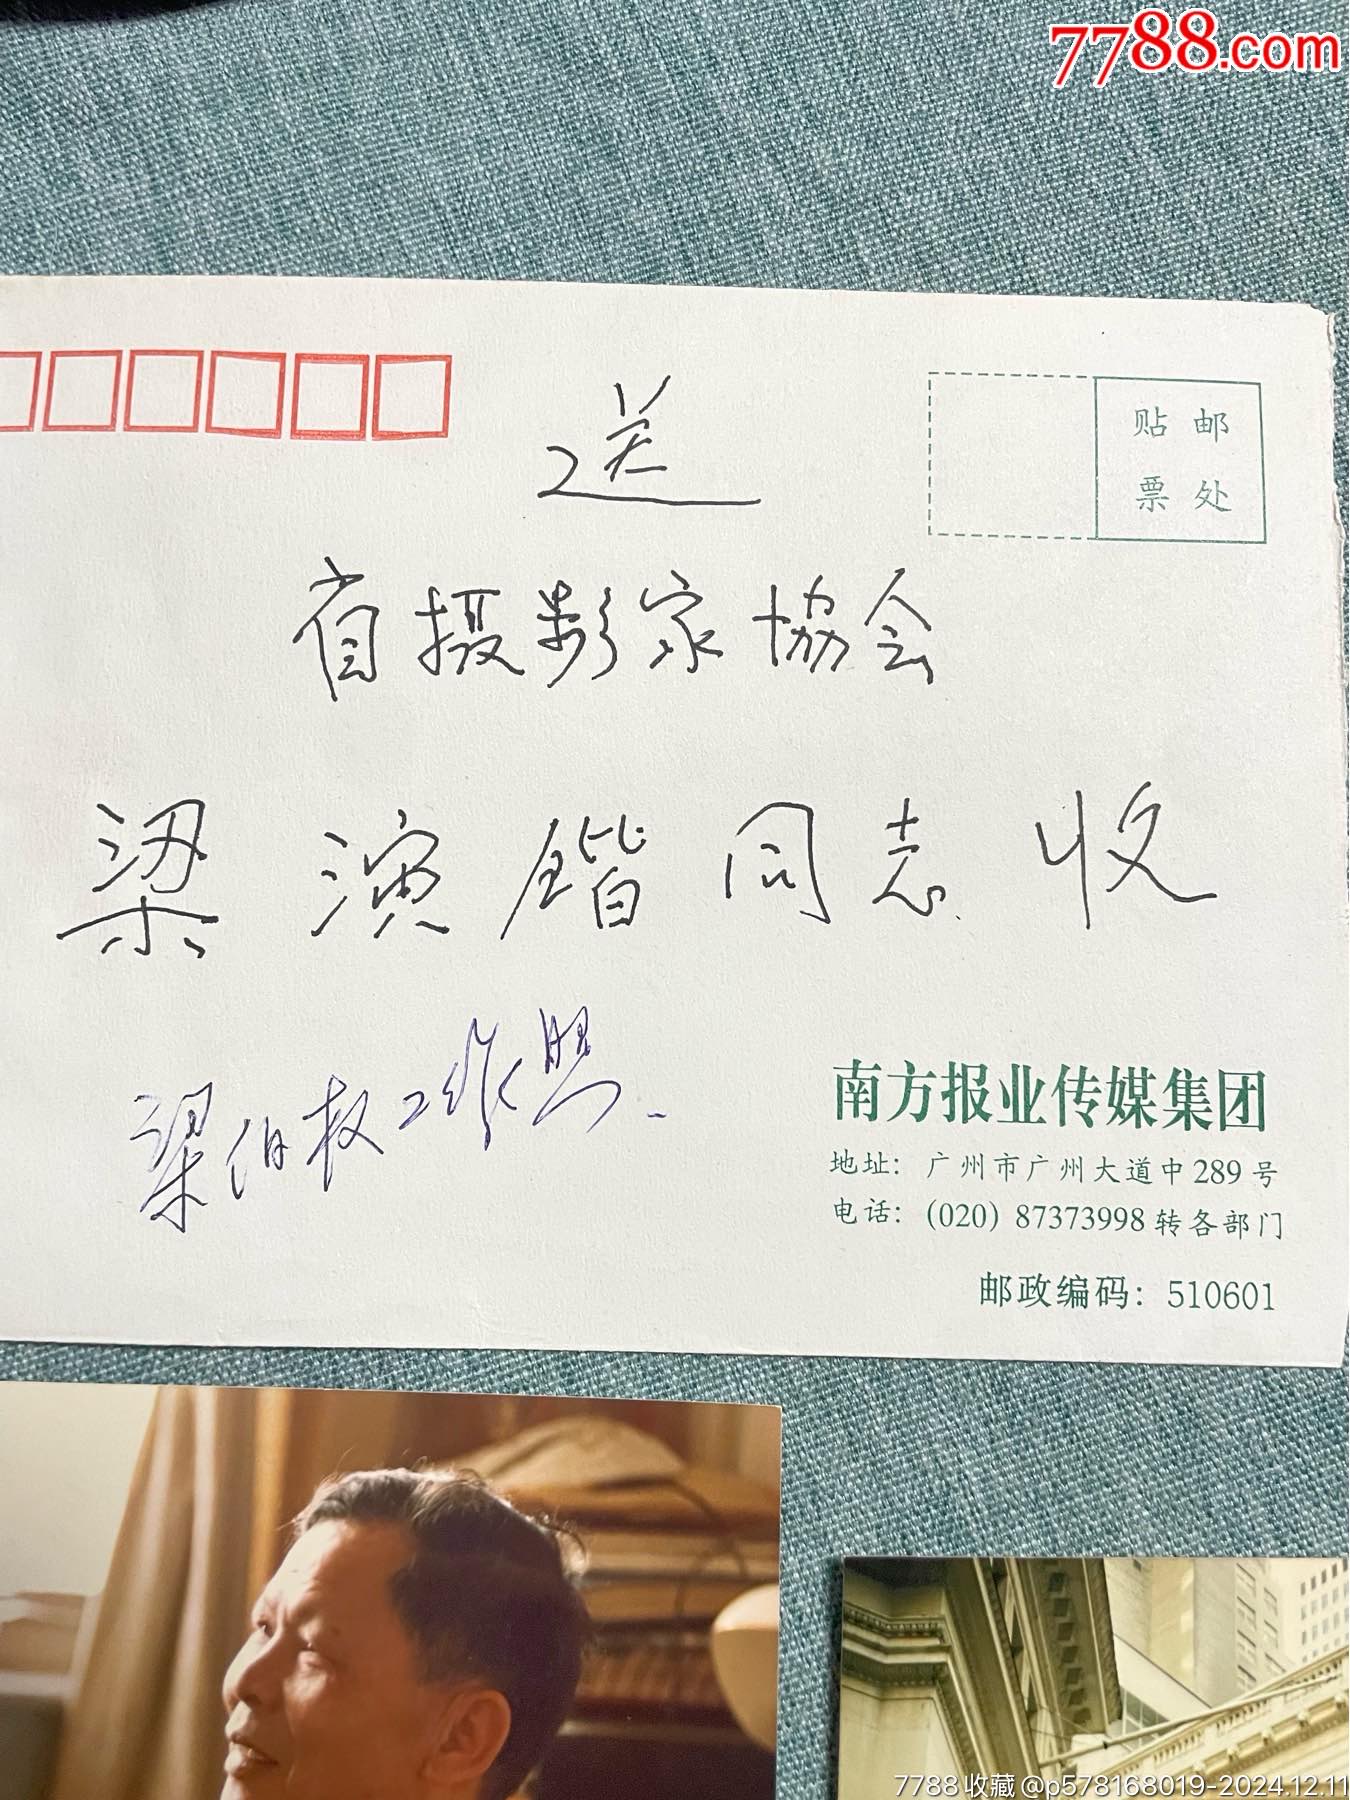 7788.com
送
贴 邮
票 处
省摄影家協会
梁演锴同志收
梁伯权工作照.
南方报业传媒集团
地址：广州市广州大道中289号
电话：(020) 87373998转各部门
邮政编码：510601
7788收藏@p578168019-2024.12.11